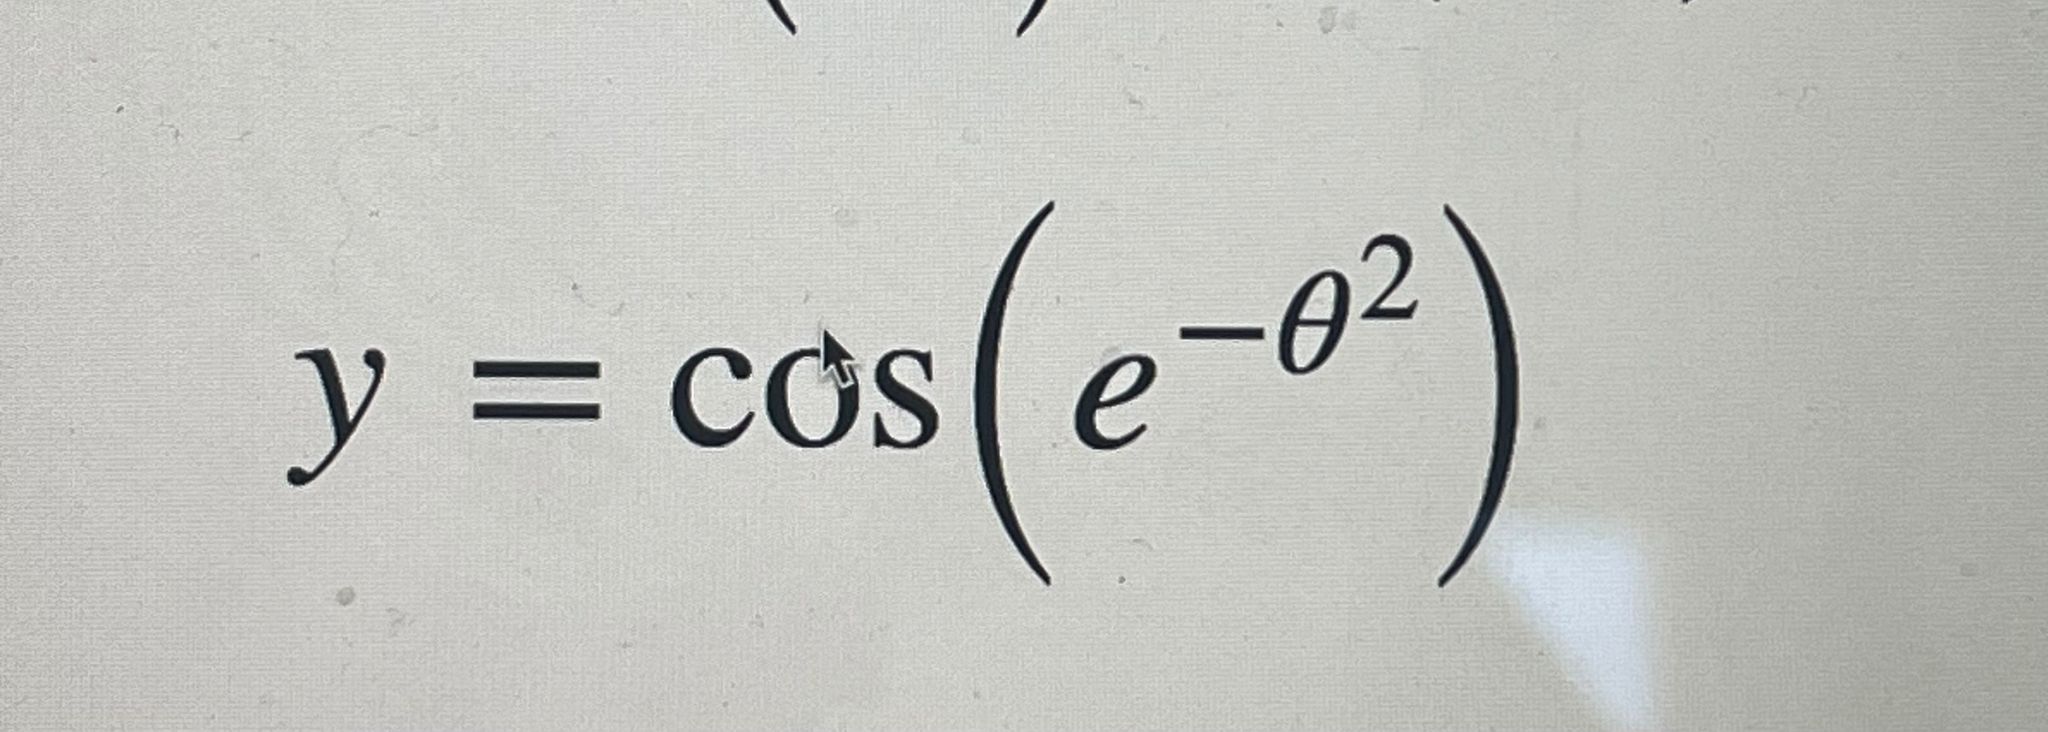 y = cos(e^{-θ^2})